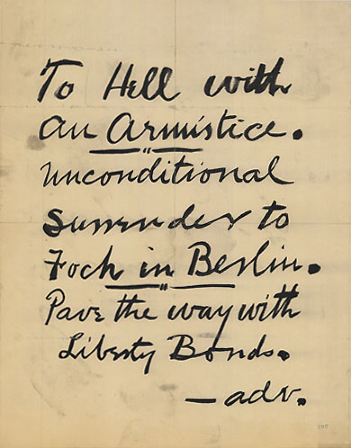 To Hell with
an Armistice.
Unconditional
Surrender to
Foch in Berlin.
Pave the way with
Liberty Bonds.
— adv.